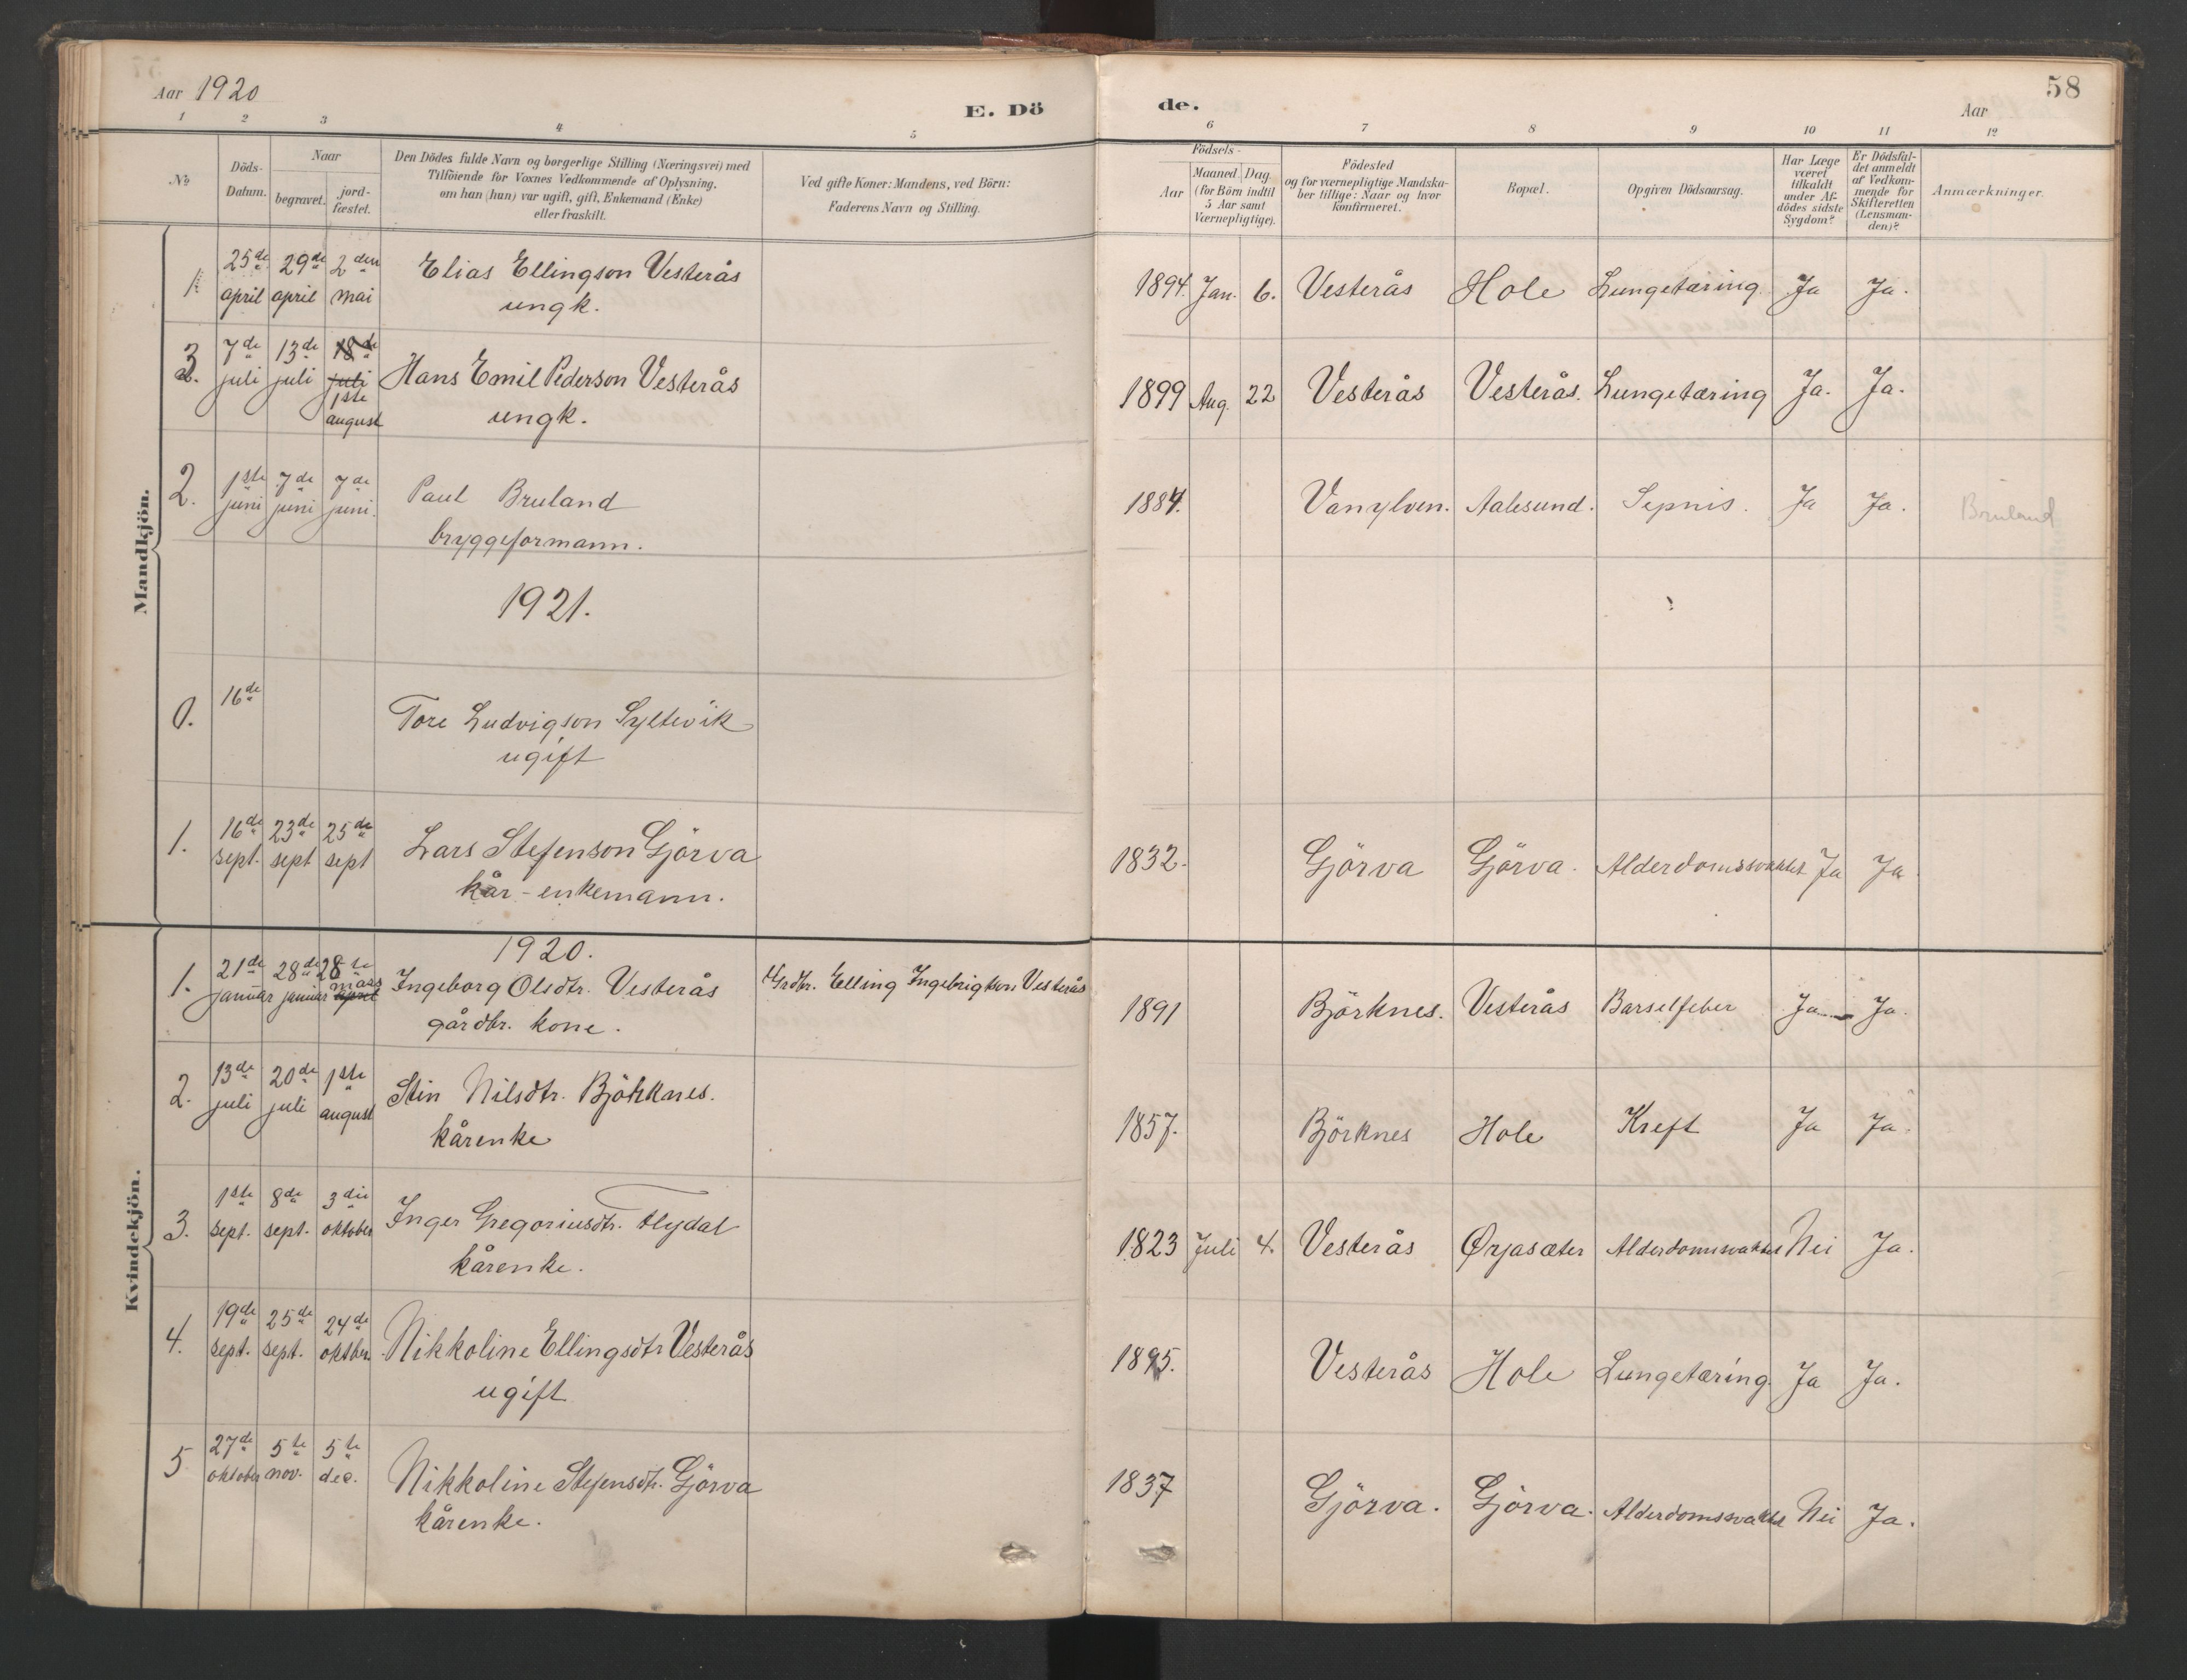 58
Aar 1920
E. Dö
de.
Aar
1 2 3 4 5 6 7 8 9 10 11 12
No
Döds-
Datum.
Naar
begravet.
jord-
fæstet.
Den Dödes fulde Navn og borgerlige Stilling (Næringsvei) med
Tilföiende for Voxnes Vedkommende af Oplysning,
om han (hun) var ugift, gift, Enkemand (Enke)
eller fraskilt.
Ved gifte Koner: Mandens, ved Börn:
Faderens Navn og Stilling.
Födsels-
Aar
Maaned Dag
(for Börn indtil
5 Aar samt
Værnepligtige).
Födested
og for værnepligtige Mandska-
ber tillige: Naar og hvor
konfirmeret.
Bopæl.
Opgiven Dödsaarsag.
Har Læge
været
tilkaldt
under Af-
dödes sidste
Sygdom?
Er Dödsfal-
det anmeldt
af Vedkom-
mende for
Skifteretten
(Lensman-
den)?
Anmærkninger.
Mandkjön.
1 25de 29de 2den Elias Ellingson Vesterås
april april mai ungk.
1894. Jan. 6. Vesterås Hole Lungetæring. Ja Ja.
3 7de 13de 18de
2. juli juli juli Hans Emil Pederson Vesterås
1ste
august ungk.
1899 Aug. 22 Vesterås Vesterås. Lungetæring Ja. Ja.
2. 1ste 7de 7de Paul Bruland
juni juni juni. bryggeformann.
1884. Vanylven. Aalesund. Sepnis. Ja Ja. Bruland
1921.
0. 16de Tore Ludvigson Syltevik
ugift
1. 16de 23de 25de Lars Stefenson Gjörva
sept. sept sept kår-enkemann.
1832. Gjörva Gjörva. Alderdomssvakhet Ja Ja
Kvindekjön.
1920.
1. 21de 28de 28de Ingeborg Olsdtr. Vesterås Grdbr. Elling Ingebrigtson Vesterås
januar januar mars april gårdbr. kone.
1891 Björknes. Vesterås Barselfeber Ja Ja.
2. 13de 20de 1ste Stin Nilsdtr. Björknes.
juli juli august kårenke
1857. Björknes Hole Kreft Ja Ja.
3. 1ste 8de 3die Inger Gregoriusdtr. Flydal
sept. sept. oktober kårenke.
1823 Juli 4. Vesterås Ørjasæter Alderdomsvakhet Nei Ja.
4. 19de 25de 24de Nikkoline Ellingsdtr Vesterås
sept. sept. oktber. ugift
1895. Vesterås Hole Lungetæring. Ja Ja.
5 27de 5te 5te Nikkoline Stefensdtr. Gjörva
oktober nov. dec. kårenke.
1837 Gjörva. Gjörva. Alderdomssvakhet Nei Ja.